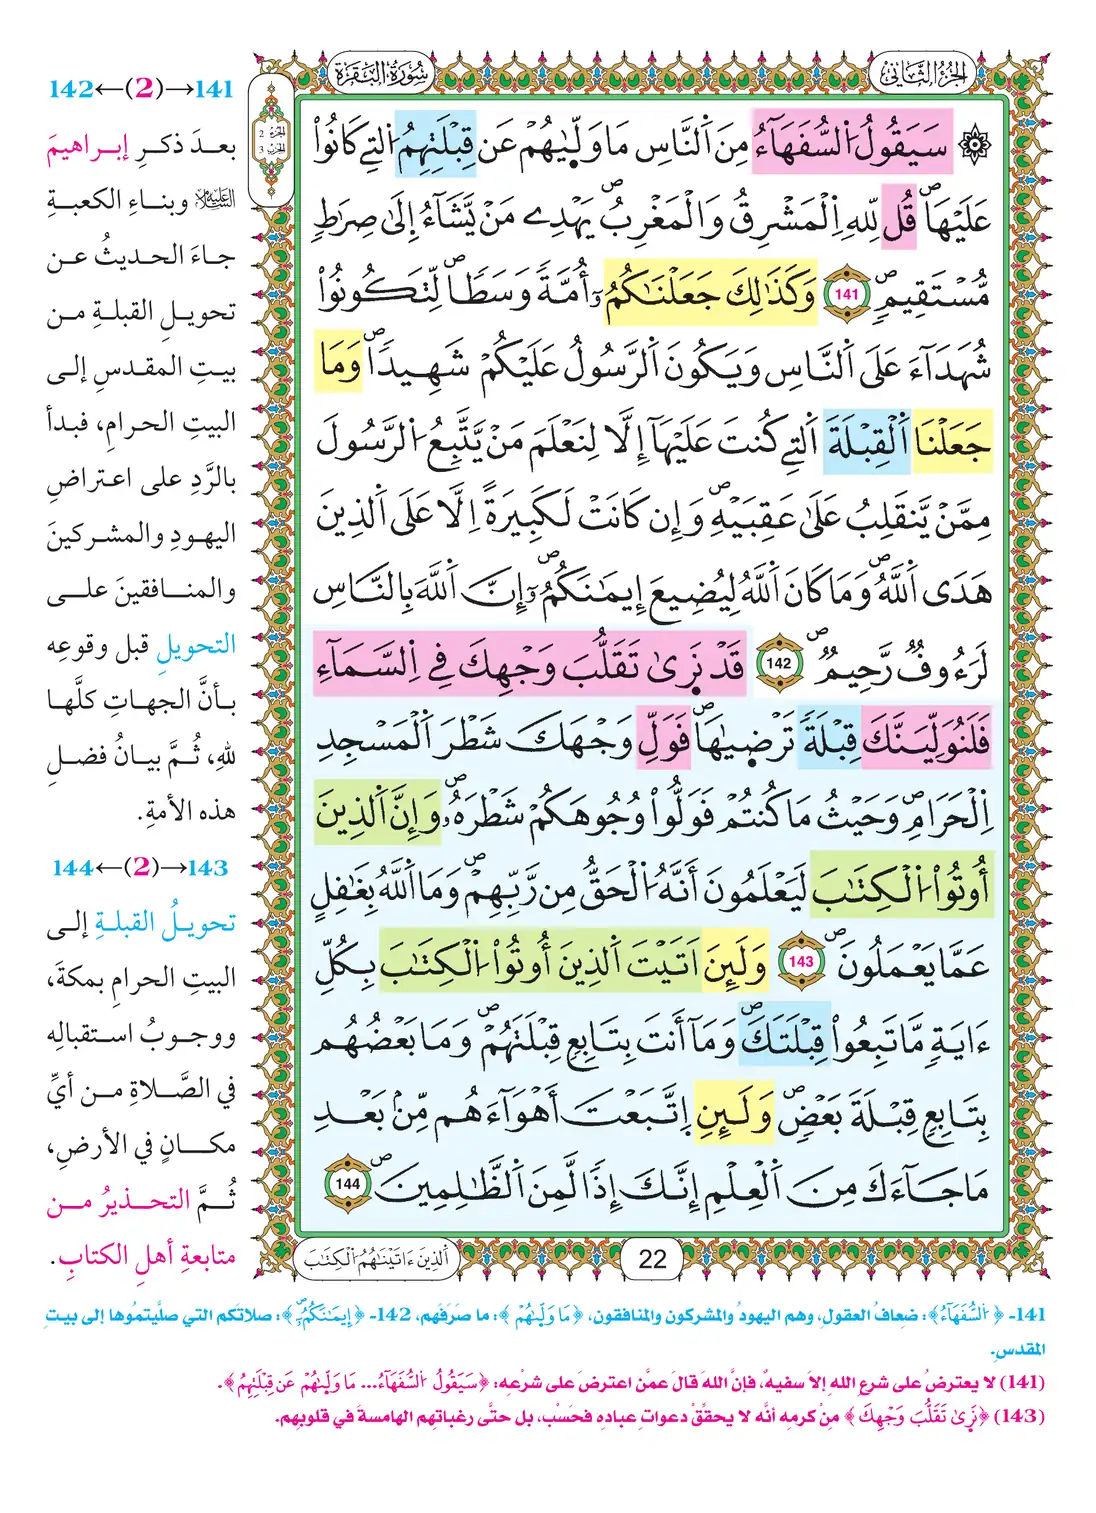 الجزء الثاني
سورة البقرة
الجزء 2
الحزب 3
سَيَقُولُ اُ۬لسُّفَهَآءُ مِنَ اَ۬لنَّاسِ مَا وَلّ۪يٰهُمْ عَن قِبْلَتِهِمُ اُ۬لتِے كَانُواْ
عَلَيْهَاۖ قُل لِّلهِ اِ۬لْمَشْرِقُ وَالْمَغْرِبُۖ يَهْدِے مَنْ يَّشَآءُ اِ۪لَىٰ صِرَٰطٖ
مُّسْتَقِيمٖۖ 141 وَكَذَٰلِكَ جَعَلْنَٰكُمُۥٓ أُمَّةٗ وَسَطاٗ لِّتَكُونُواْ
شُهَدَآءَ عَلَى اَ۬لنَّاسِ وَيَكُونَ اَ۬لرَّسُولُ عَلَيْكُمْ شَهِيداٗۖ وَمَا
جَعَلْنَا اَ۬لْقِبْلَةَ اَ۬لتِے كُنتَ عَلَيْهَآ إِلَّا لِنَعْلَمَ مَنْ يَّتَّبِعُ اُ۬لرَّسُولَ
مِمَّنْ يَّنقَلِبُ عَلَىٰ عَقِبَيْهِۖ وَإِن كَانَتْ لَكَبِيرَةً اِلَّا عَلَى اَ۬لذِينَ
هَدَى اَ۬للَّهُۖ وَمَا كَانَ اَ۬للَّهُ لِيُضِيعَ إِيمَٰنَكُمُۥٓۖ إِنَّ اَ۬للَّهَ بِالنَّاسِ
لَرَءُوفٞ رَّحِيمٞۖ 142 قَدْ نَر۪ىٰ تَقَلُّبَ وَجْهِكَ فِے اِ۬لسَّمَآءِ
فَلَنُوَلِّيَنَّكَ قِبْلَةٗ تَرْض۪يٰهَاۖ فَوَلِّ وَجْهَكَ شَطْرَ اَ۬لْمَسْجِدِ
اِ۬لْحَرَامِۖ وَحَيْثُ مَا كُنتُمْ فَوَلُّواْ وُجُوهَكُمْ شَطْرَهُۥۖ وَإِنَّ اَ۬لذِينَ
أُوتُواْ اُ۬لْكِتَٰبَ لَيَعْلَمُونَ أَنَّهُ اُ۬لْحَقُّ مِن رَّبِّهِمْۖ وَمَا اَ۬للَّهُ بِغَٰفِلٍ
عَمَّا يَعْمَلُونَۖ 143 وَلَئِنَ اَتَيْتَ اَ۬لذِينَ أُوتُواْ اُ۬لْكِتَٰبَ بِكُلِّ
ءَايَةٖ مَّا تَبِعُواْ قِبْلَتَكَۖ وَمَآ أَنتَ بِتَابِعٖ قِبْلَتَهُمْۖ وَمَا بَعْضُهُم
بِتَابِعٖ قِبْلَةَ بَعْضٖۖ وَلَئِنِ اِ۪تَّبَعْتَ أَهْوَآءَهُم مِّنۢ بَعْدِ
مَا جَآءَكَ مِنَ اَ۬لْعِلْمِ إِنَّكَ إِذاٗ لَّمِنَ اَ۬لظَّٰلِمِينَۖ 144
22
اَ۬لذِينَ ءَاتَيْنَٰهُمُ اُ۬لْكِتَٰبَ
141→(2)←142
بعدَ ذكرِ إبراهيمَ
عليه السلام وبناءِ الكعبةِ
جاءَ الحديثُ عن
تحويلِ القبلةِ من
بيتِ المقدسِ إلى
البيتِ الحرامِ، فبدأ
بالرَّدِ على اعتراضِ
اليهودِ والمشركينَ
والمنافقينَ على
التحويلِ قبل وقوعِه
بأنَّ الجهاتِ كلَّها
للهِ، ثُمَّ بيانُ فضلِ
هذه الأمةِ.
143→(2)←144
تحويلُ القبلةِ إلى
البيتِ الحرامِ بمكةَ،
ووجوبُ استقبالِه
في الصَّلاةِ من أيِّ
مكانٍ في الأرضِ،
ثُمَّ التحذيرُ من
متابعةِ أهلِ الكتابِ.
141- ﴿اُ۬لسُّفَهَآءُ﴾: ضعافُ العقولِ، وهم اليهودُ والمشركون والمنافقون، ﴿مَا وَلّ۪يٰهُمْ﴾: ما صَرَفَهم، 142- ﴿إِيمَٰنَكُمُۥٓۖ﴾: صلاتَكم التي صلَّيتمُوها إلى بيتِ
المقدسِ.
(141) لا يعترضُ على شرعِ اللهِ إلا سفيهٌ، فإنَّ اللهَ قالَ عمَّن اعترضَ على شرعِه: ﴿سَيَقُولُ اُ۬لسُّفَهَآءُ... مَا وَلّ۪يٰهُمْ عَن قِبْلَتِهِمُ﴾.
(143) ﴿نَر۪ىٰ تَقَلُّبَ وَجْهِكَ﴾ مِنْ كرمِه أنَّه لا يحقِّقُ دعواتِ عبادِه فحَسْب، بل حتَّى رغباتِهم الهامسةَ في قلوبِهم.